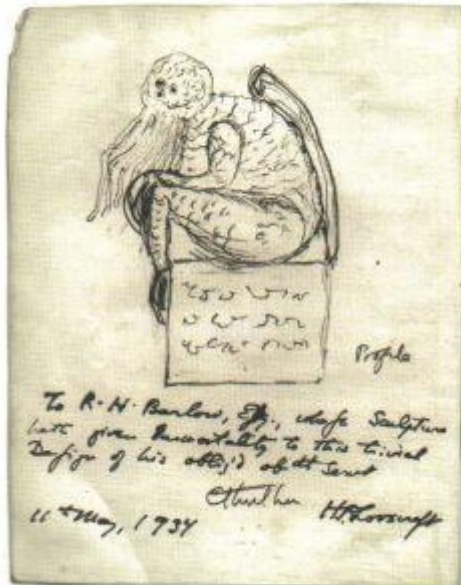 Profile
To R. H. Barlow, Esq., whose Sculpture
hath given Immortality to this trivial
Design of his oblig'd obdt Servt
Cthulhu HPLovecraft
11th May, 1934